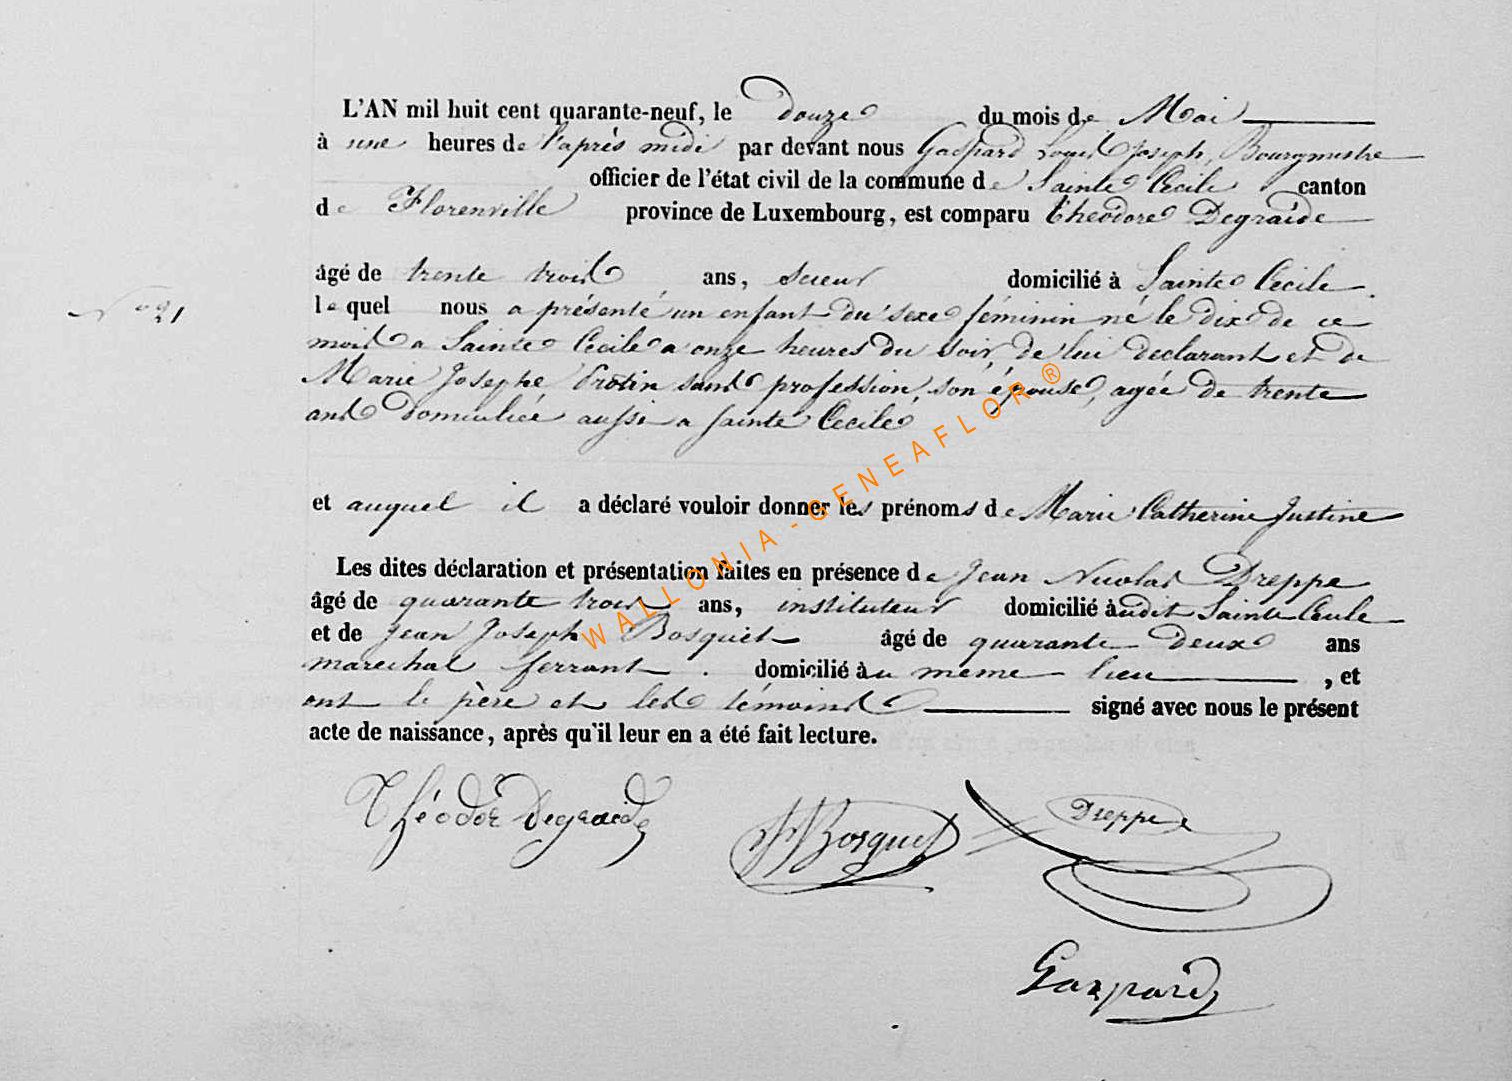 L'AN mil huit cent quarante-neuf, le douze du mois de Mai
à une heures de l'après midi par devant nous Gaspard Louis Joseph, Bourgmestre
officier de l'état civil de la commune de Sainte Cecile canton
de Florenville province de Luxembourg, est comparu Théodore Degraide
âgé de trente trois ans, scieur domicilié à Sainte Cécile
N° 21
lequel nous a présenté un enfant du sexe féminin né le dix de ce
mois a Sainte Cecile a onze heures du soir, de lui declarant et de
Marie Josephe Protin sans profession, son épouse, agée de trente
ans domiciliée aussi a Sainte Cecile
et auquel il a déclaré vouloir donner les prénoms de Marie Catherine Justine
Les dites déclaration et présentation faites en présence de Jean Nicolas Dreppe
âgé de quarante trois ans, instituteur domicilié audit Sainte Cecile
et de Jean Joseph Bosquet âgé de quarante deux ans
marechal ferrant. domicilié au même lieu , et
ont le père et les témoins signé avec nous le présent
acte de naissance, après qu'il leur en a été fait lecture.
Théodor Degraide
JJBosquet
Dreppe
Gaspard
WALLONIA - GENEAFLOR ®